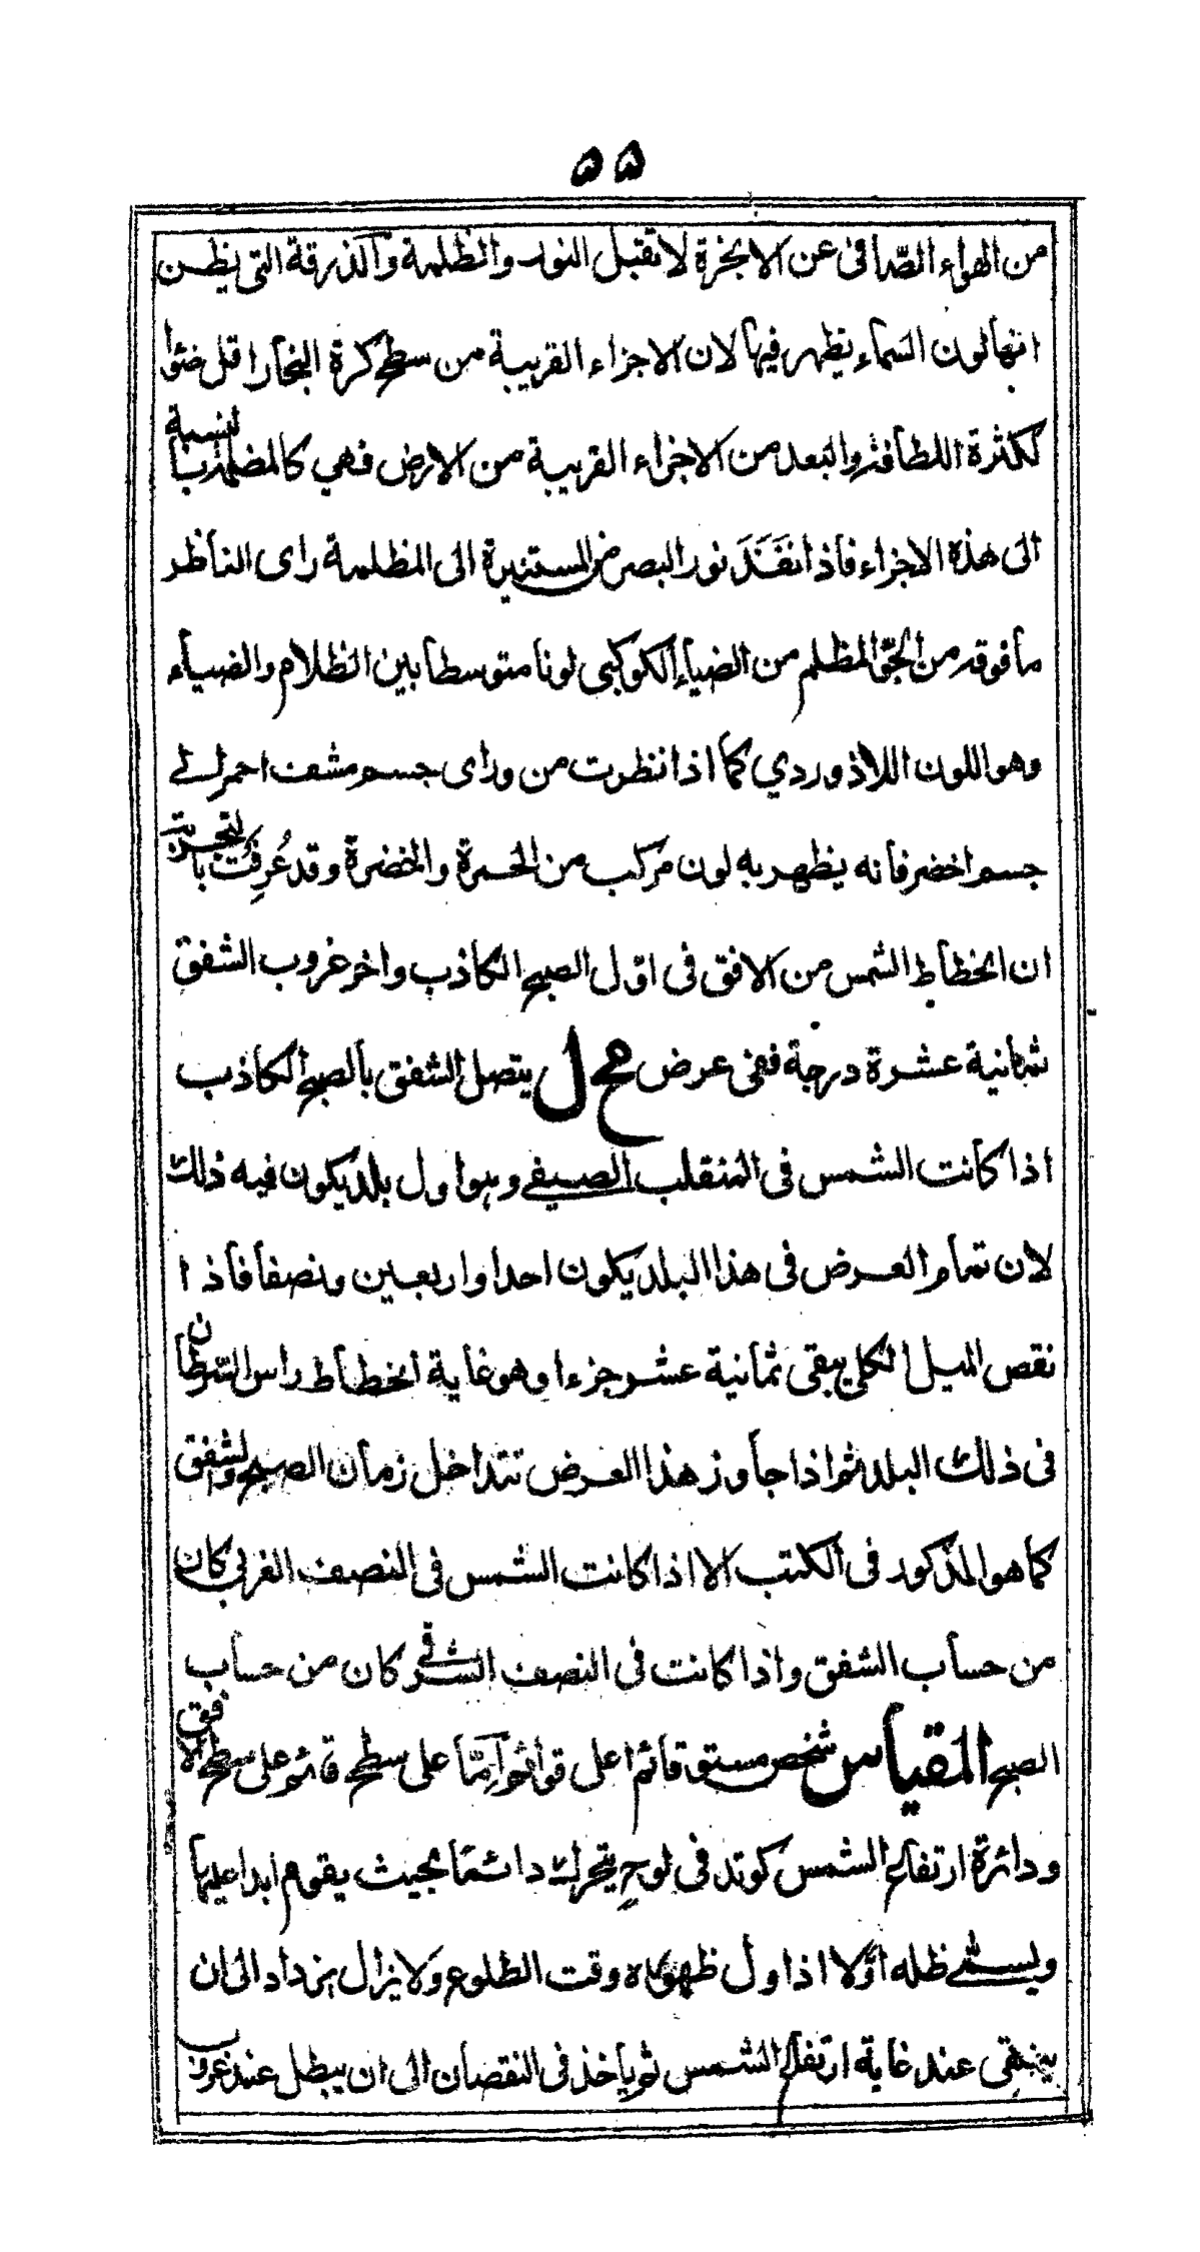 ٥٥
من الهواء الصّافى عن الابخرة لا تقبل النور والظلمة والزرقة التى يظن
انها لون السماء يظهر فيها لان الاجزاء القريبة من سطح كرة البخار اقل ضوا
لكثرة اللطافة والبعد من الاجزاء القريبة من الارض فهي كالمظلمة بالنسبة
الى هذه الاجزاء فاذا نفَذَ نور البصر من المستنيرة الى المظلمة راى الناظر
ما فوقه من الجوّ المظلم من الضياء الكوكبى لونا متوسطا بين الظلام والضياء
وهو اللون اللاذوردي كما اذا نظرت من وراى جسم مشف احمر الى
جسم اخضر فانه يظهر به لون مركب من الحمرة والخضرة وقد عُرِفَت بالتجربة
ان انحطاط الشمس من الافق فى اوّل الصبح الكاذب واخر غروب الشفق
ثمانية عشرة درجة ففى عرض مح ل يتصل الشفق بالصبح الكاذب
اذا كانت الشمس فى المنقلب الصيفے وہو اول بلد يكون فيه ذلك
لان تمام العرض فى هذا البلد يكون احدا واربعين ونصفا فاذا
نقص الميل الكلى يبقى ثمانية عشر جزءا وهو غاية انحطاط راس السرطان
فى ذلك البلد ثم اذا جاوز هذا العرض تتداخل زمان الصبح والشفق
كما هو المذكور فى الكتب الا اذا كانت الشمس فى النصف الغربى كان
من حساب الشفق واذا كانت فى النصف الشرقے كان من حساب
الصبح المقياس شخص مستو قائم اعلى قوائم امّا على سطح قائم على سطح الافق
ودائرة ارتفاع الشمس كوتد فى لوحٍ يتحرك دائما بحيث يقوم ابدا عليها
ويسمّے ظله اوّلا اذا ول ظهوره وقت الطلوع ولا يزال يزداد الى ان
ينتهى عند غاية ارتفاع الشمس ثم ياخذ فى النقصان الى ان يبطل عند غروب